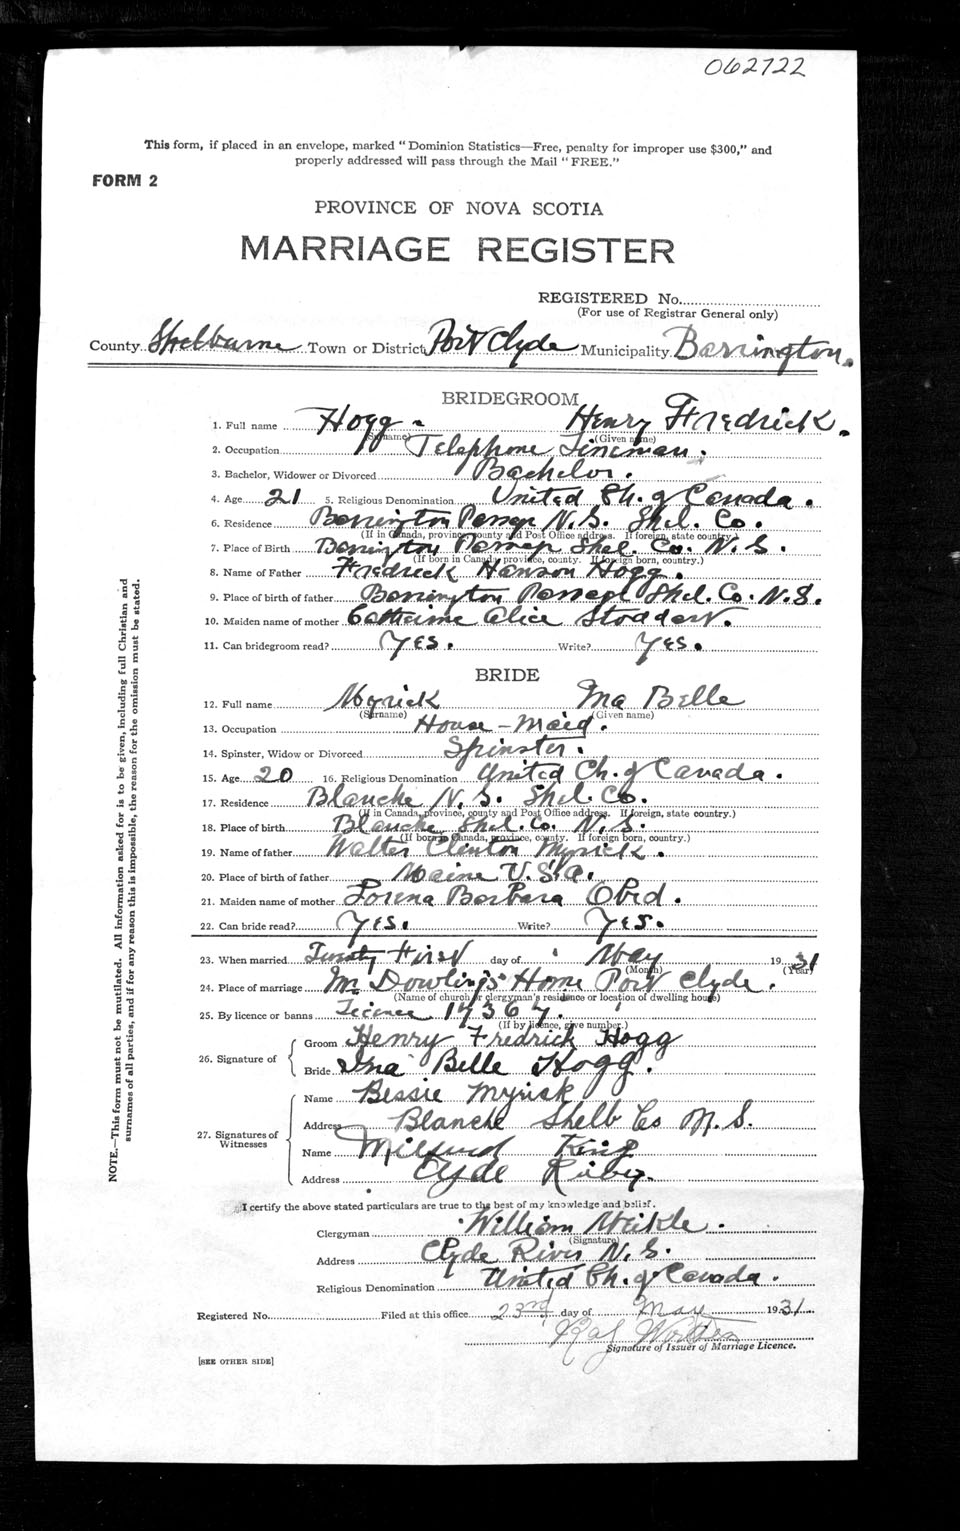 062722
This form, if placed in an envelope, marked "Dominion Statistics—Free, penalty for improper use $300," and
properly addressed will pass through the Mail "FREE."
FORM 2
PROVINCE OF NOVA SCOTIA
MARRIAGE REGISTER
REGISTERED No.
(For use of Registrar General only)
County Shelburne Town or District Port Clyde Municipality Barrington.
BRIDEGROOM
1. Full name Hogg - Henry Fredrick.
(Surname) (Given name)
2. Occupation Telephone Lineman.
3. Bachelor, Widower or Divorced Bachelor.
4. Age 21 5. Religious Denomination United Ch. of Canada.
6. Residence Barrington Passage N.S. Shel. Co.
(If in Canada, province, county and Post Office address. If foreign, state country.)
7. Place of Birth Barrington Passage Shel. Co. N.S.
(If born in Canada, province, county. If foreign born, country.)
8. Name of Father Fredrick Hanson Hogg.
9. Place of birth of father Barrington Passage Shel. Co. N.S.
10. Maiden name of mother Catherine Alice Stoddart.
11. Can bridegroom read? Yes. Write? Yes.
BRIDE
12. Full name Myrick Ina Belle
(Surname) (Given name)
13. Occupation House-Maid.
14. Spinster, Widow or Divorced Spinster.
15. Age 20 16. Religious Denomination United Ch. of Canada.
17. Residence Blanche N.S. Shel. Co.
(If in Canada, province, county and Post Office address. If foreign, state country.)
18. Place of birth Blanche Shel. Co. N.S.
(If born in Canada, province, county. If foreign born, country.)
19. Name of father Walter Clinton Myrick.
20. Place of birth of father Maine U.S.A.
21. Maiden name of mother Lorena Barbara Obed.
22. Can bride read? Yes. Write? Yes.
23. When married Twenty First day of May 1931
(Month) (Year)
24. Place of marriage Mr Dowling's Home Port Clyde.
(Name of church or clergyman's residence or location of dwelling house)
25. By licence or banns Licence 17367.
(If by licence, give number.)
26. Signature of
Groom Henry Fredrick Hogg
Bride Ina Belle Hogg.
27. Signatures of Witnesses
Name Bessie Myrick
Address Blanche Shelb Co N.S.
Name Milford King
Address Clyde River.
I certify the above stated particulars are true to the best of my knowledge and belief.
Clergyman William Meikle.
(Signature)
Address Clyde River N.S.
Religious Denomination United Ch. of Canada.
Registered No. Filed at this office 23rd day of May 1931
Signature of Issuer of Marriage Licence.
[SEE OTHER SIDE]
NOTE.—This form must not be mutilated. All information asked for is to be given, including full Christian and
surnames of all parties, and if for any reason this is impossible, the reason for the omission must be stated.